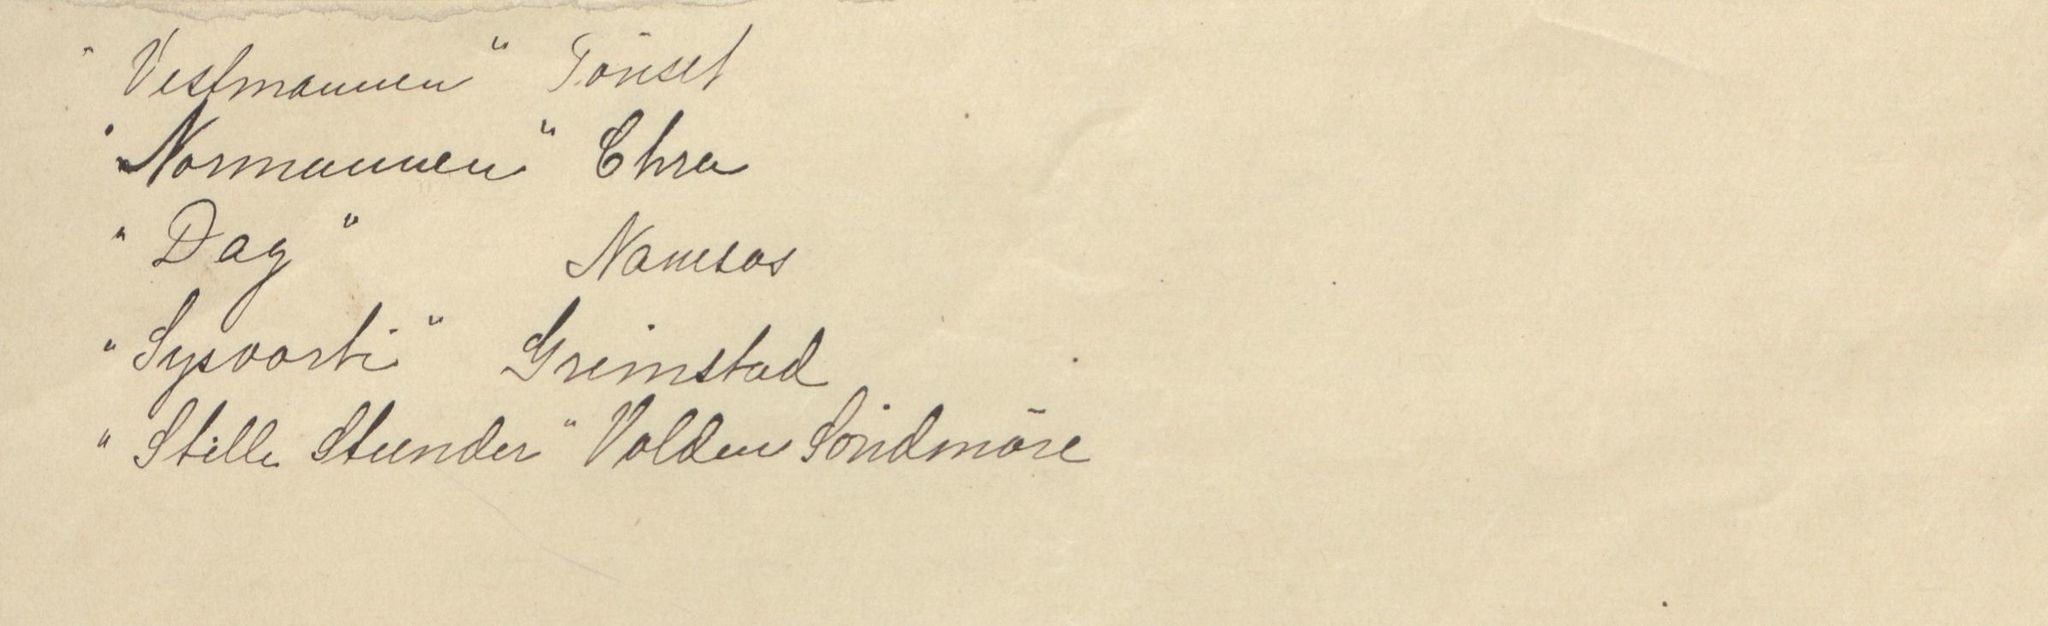 "Vestmannen" Tönset
"Normannen" Chra
"Dag" Namsos
"Sysvorti" Grimstad
"Stille Stunder" Volden Söndmöre